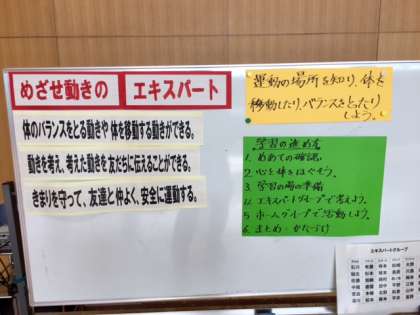 めざせ動きの エキスパート
体のバランスをとる動きや 体を移動する動きができる。
動きを考え、考えた動きを友だちに伝えることができる。
きまりを守って、友達と仲よく、安全に運動する。
運動の場所を知り、体を
移動したり、バランスをとったり
しよう。
学習の進め方
1. めあての確認
2. 心と体をほぐそう。
3. 学習の場の準備
4. エキスパートグループで考えよう。
5. ホームグループで活動しよう。
6. まとめ・かたづけ
エキスパートグループ